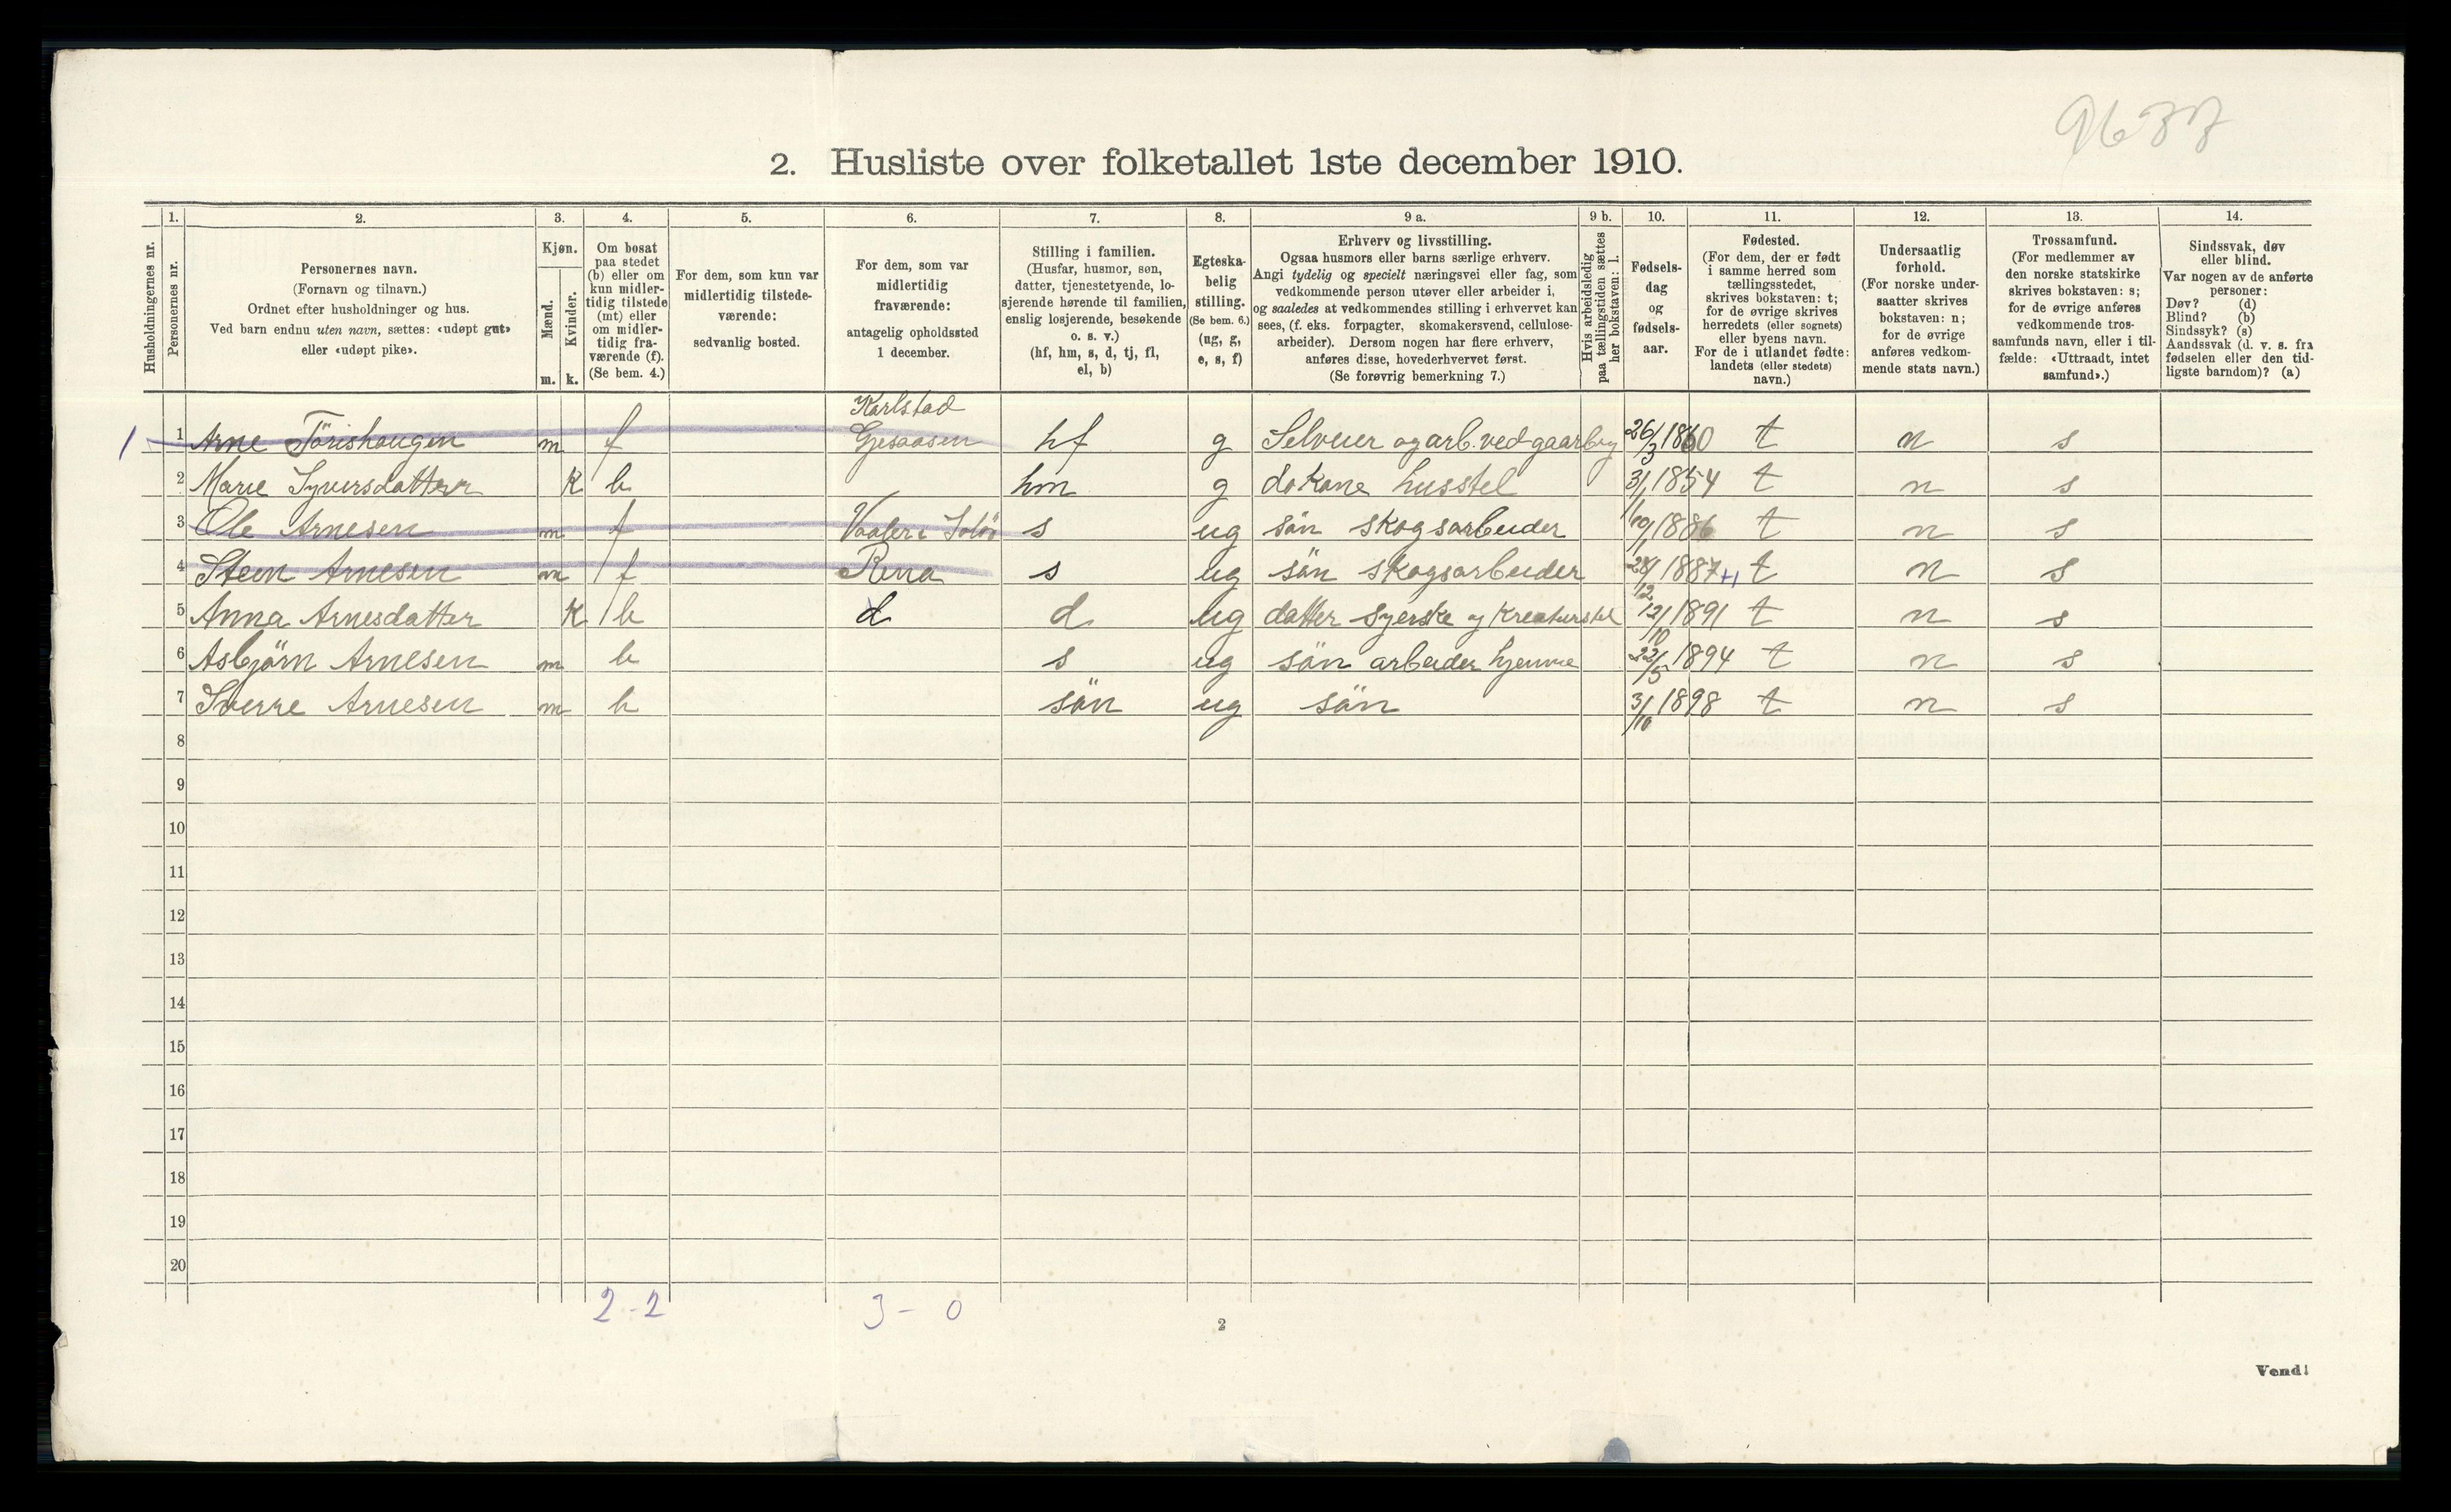 9677
2. Husliste over folketallet 1ste december 1910.
Husholdningernes nr.
1.
Personernes nr.
2.
Personernes navn.
(Fornavn og tilnavn.)
Ordnet efter husholdninger og hus.
Ved barn endnu uten navn, sættes: «udøpt gut»
eller «udøpt pike».
3.
Kjøn.
Mænd.
Kvinder.
m. k.
4.
Om bosat
paa stedet
(b) eller om
kun midler-
tidig tilstede
(mt) eller
om midler-
tidig fra-
værende (f).
(Se bem. 4.)
5.
For dem, som kun var
midlertidig tilstede-
værende:
sedvanlig bosted.
6.
For dem, som var
midlertidig
fraværende:
antagelig opholdssted
1 december.
7.
Stilling i familien.
(Husfar, husmor, søn,
datter, tjenestetyende, lo-
sjerende hørende til familien,
enslig losjerende, besøkende
o. s. v.)
(hf, hm, s, d, tj, fl,
el, b)
8.
Egteska-
belig
stilling.
(Se bem. 6.)
(ug, g,
e, s, f)
9 a.
Erhverv og livsstilling.
Ogsaa husmors eller barns særlige erhverv.
Angi tydelig og specielt næringsvei eller fag, som
vedkommende person utøver eller arbeider i,
og saaledes at vedkommendes stilling i erhvervet kan
sees, (f. eks. forpagter, skomakersvend, cellulose-
arbeider). Dersom nogen har flere erhverv,
anføres disse, hovederhvervet først.
(Se forøvrig bemerkning 7.)
9 b.
Hvis arbeidsledig
paa tællingstiden sættes
her bokstaven: l.
10.
Fødsels-
dag
og
fødsels-
aar.
11.
Fødested.
(For dem, der er født
i samme herred som
tællingsstedet,
skrives bokstaven: t;
for de øvrige skrives
herredets (eller sognets)
eller byens navn.
For de i utlandet fødte:
landets (eller stedets)
navn.)
12.
Undersaatlig
forhold.
(For norske under-
saatter skrives
bokstaven: n;
for de øvrige
anføres vedkom-
mende stats navn.)
13.
Trossamfund.
(For medlemmer av
den norske statskirke
skrives bokstaven: s;
for de øvrige anføres
vedkommende tros-
samfunds navn, eller i til-
fælde: «Uttraadt, intet
samfund».)
14.
Sindssvak, døv
eller blind.
Var nogen av de anførte
personer:
Døv? (d)
Blind? (b)
Sindssyk? (s)
Aandssvak (d. v. s. fra
fødselen eller den tid-
ligste barndom)? (a)
Karlstad
1 1 Arne Törishaugen m f Gjesaasen hf g Selveier og arb. ved gaarbrg 26/3 1860 t n s
2 Marie Syversdatter K b hm g do Kone husstel 31/1 1854 t n s
3 Ole Arnesen m f Vaaler i Solör s ug sön skogsarbeider 10/1 1886 t n s
4 Steen Arnesen m f Rena s ug sön skogsarbeider 28/12 1887 +1 t n s
5 Anna Arnesdatter K b d d ug datter syerske og Kreaturstel 12/10 1891 t n s
6 Asbjörn Arnesen m b s ug sön arbeider hjemme 22/5 1894 t n s
7 Sverre Arnesen m b sön ug sön 3/10 1898 t n s
8
9
10
11
12
13
14
15
16
17
18
19
20
2 - 2 3 - 0
2
Vend!